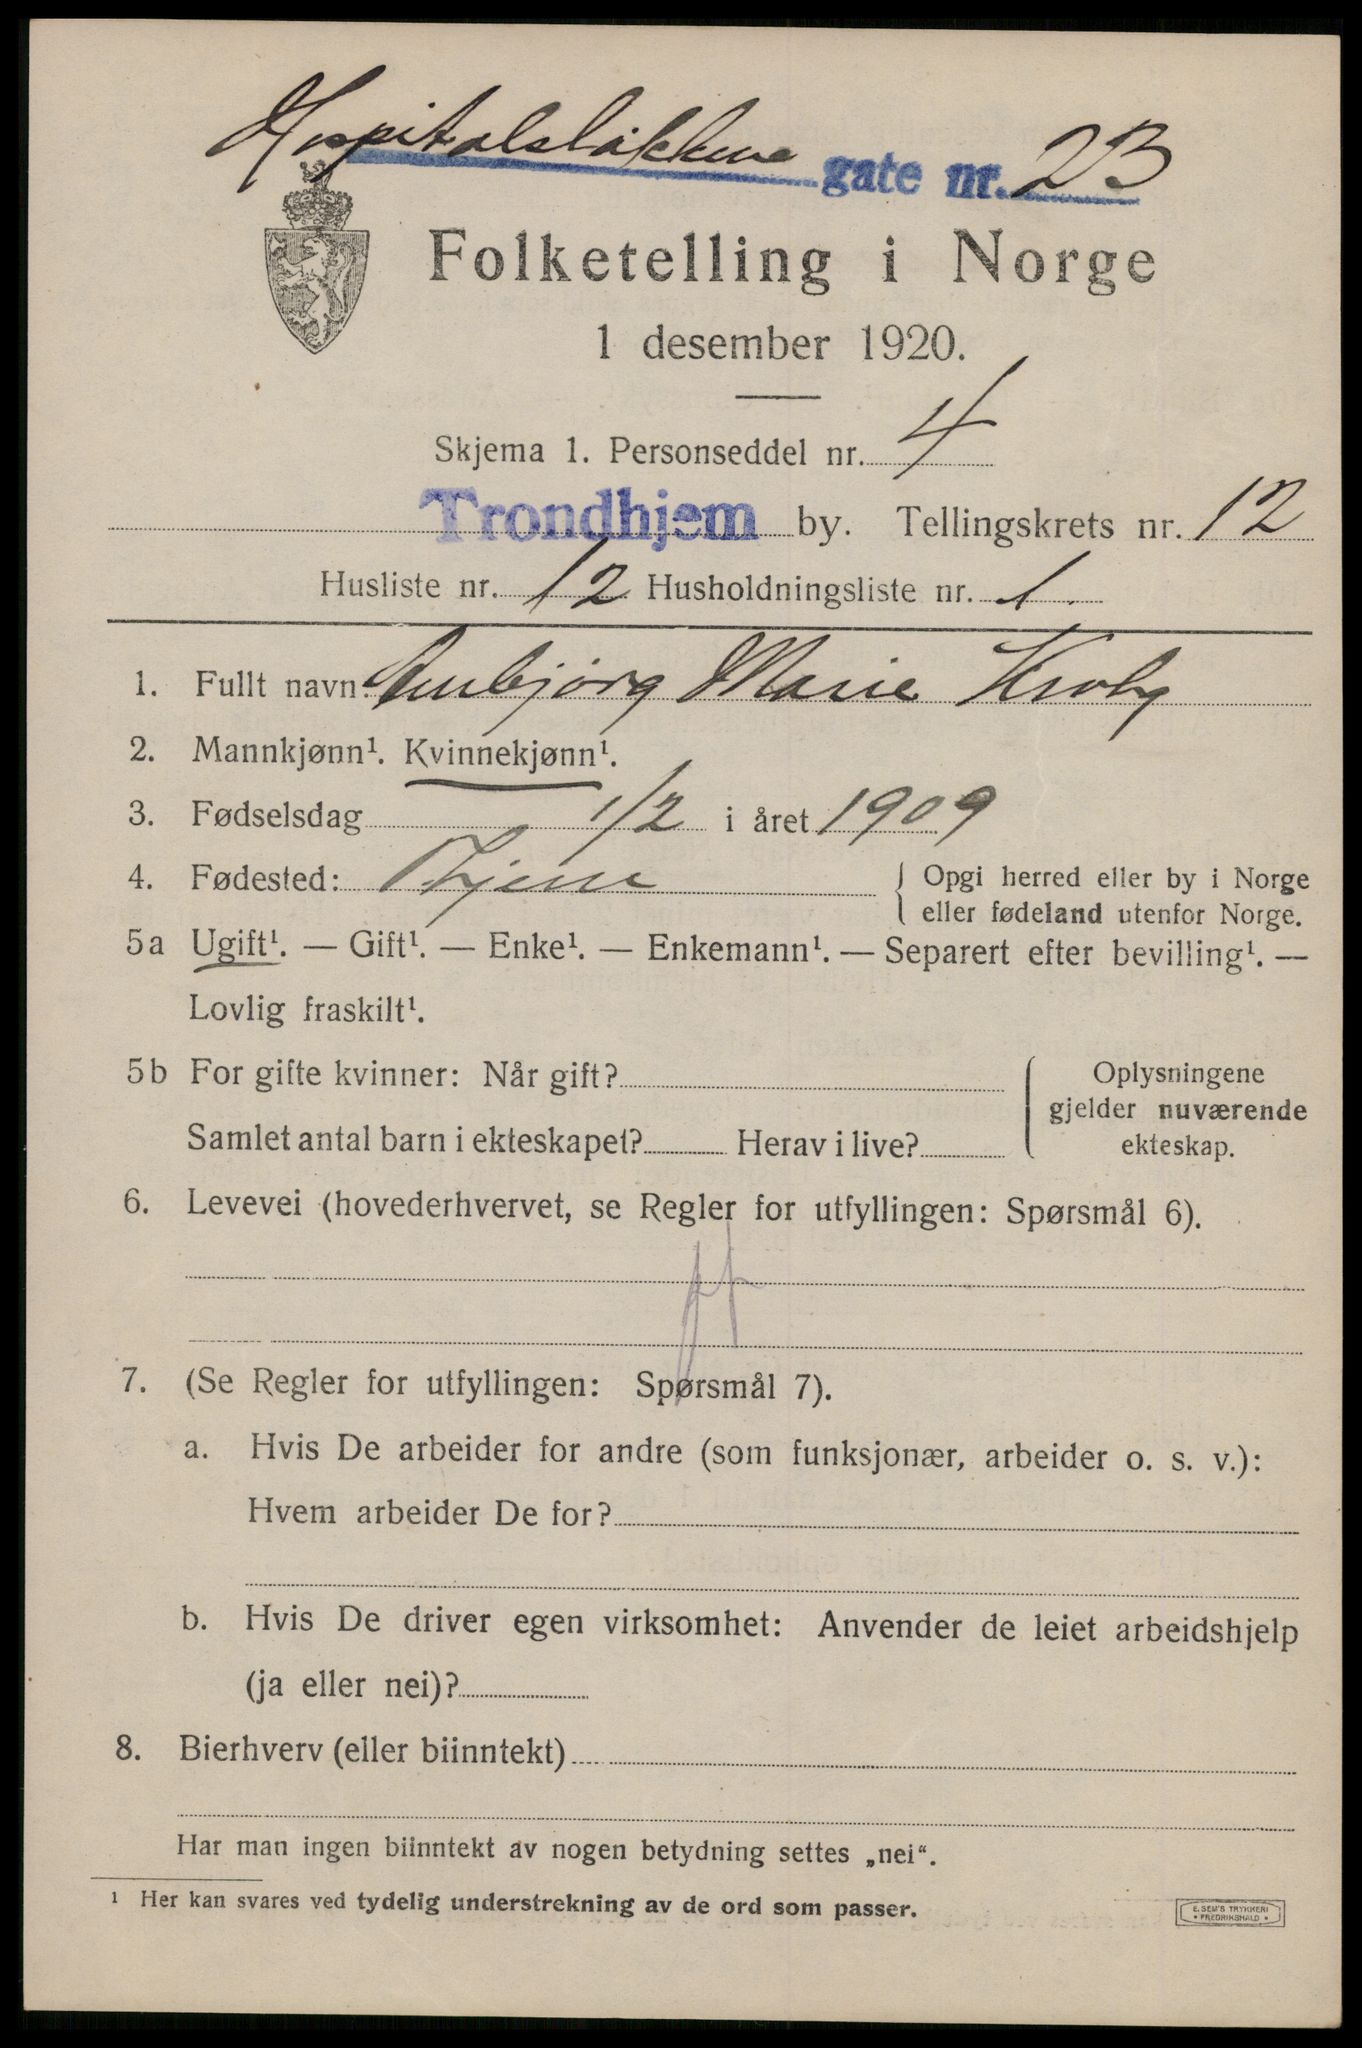 Hospitalsløkkene gate nr. 2B
Folketelling i Norge
1 desember 1920.
Skjema 1. Personseddel nr. 4
Trondhjem by. Tellingskrets nr. 12
Husliste nr. 12 Husholdningsliste nr. 1
1. Fullt navn: Aubjørg Marie Kroby
2. Mannkjønn¹. Kvinnekjønn¹.
3. Fødselsdag 1/2 i året 1909
4. Fødested: Thjem { Opgi herred eller by i Norge
eller fødeland utenfor Norge.
5a Ugift¹. — Gift¹. — Enke¹. — Enkemann¹. — Separert efter bevilling¹. —
Lovlig fraskilt¹.
5b For gifte kvinner: Når gift?
Samlet antal barn i ekteskapet? Herav i live?
Oplysningene
gjelder nuværende
ekteskap.
6. Levevei (hovederhvervet, se Regler for utfyllingen: Spørsmål 6).
7. (Se Regler for utfyllingen: Spørsmål 7).
a. Hvis De arbeider for andre (som funksjonær, arbeider o. s. v.):
Hvem arbeider De for?
b. Hvis De driver egen virksomhet: Anvender de leiet arbeidshjelp
(ja eller nei)?
8. Bierhverv (eller biinntekt)
Har man ingen biinntekt av nogen betydning settes „nei“.
¹ Her kan svares ved tydelig understrekning av de ord som passer.
E. SEM'S TRYKKERI
• FREDRIKSHALD •